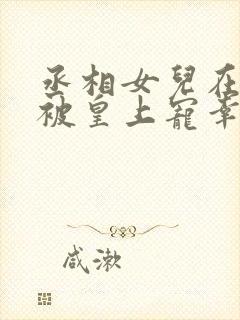 丞相女兒在
被皇上寵幸
咸漱